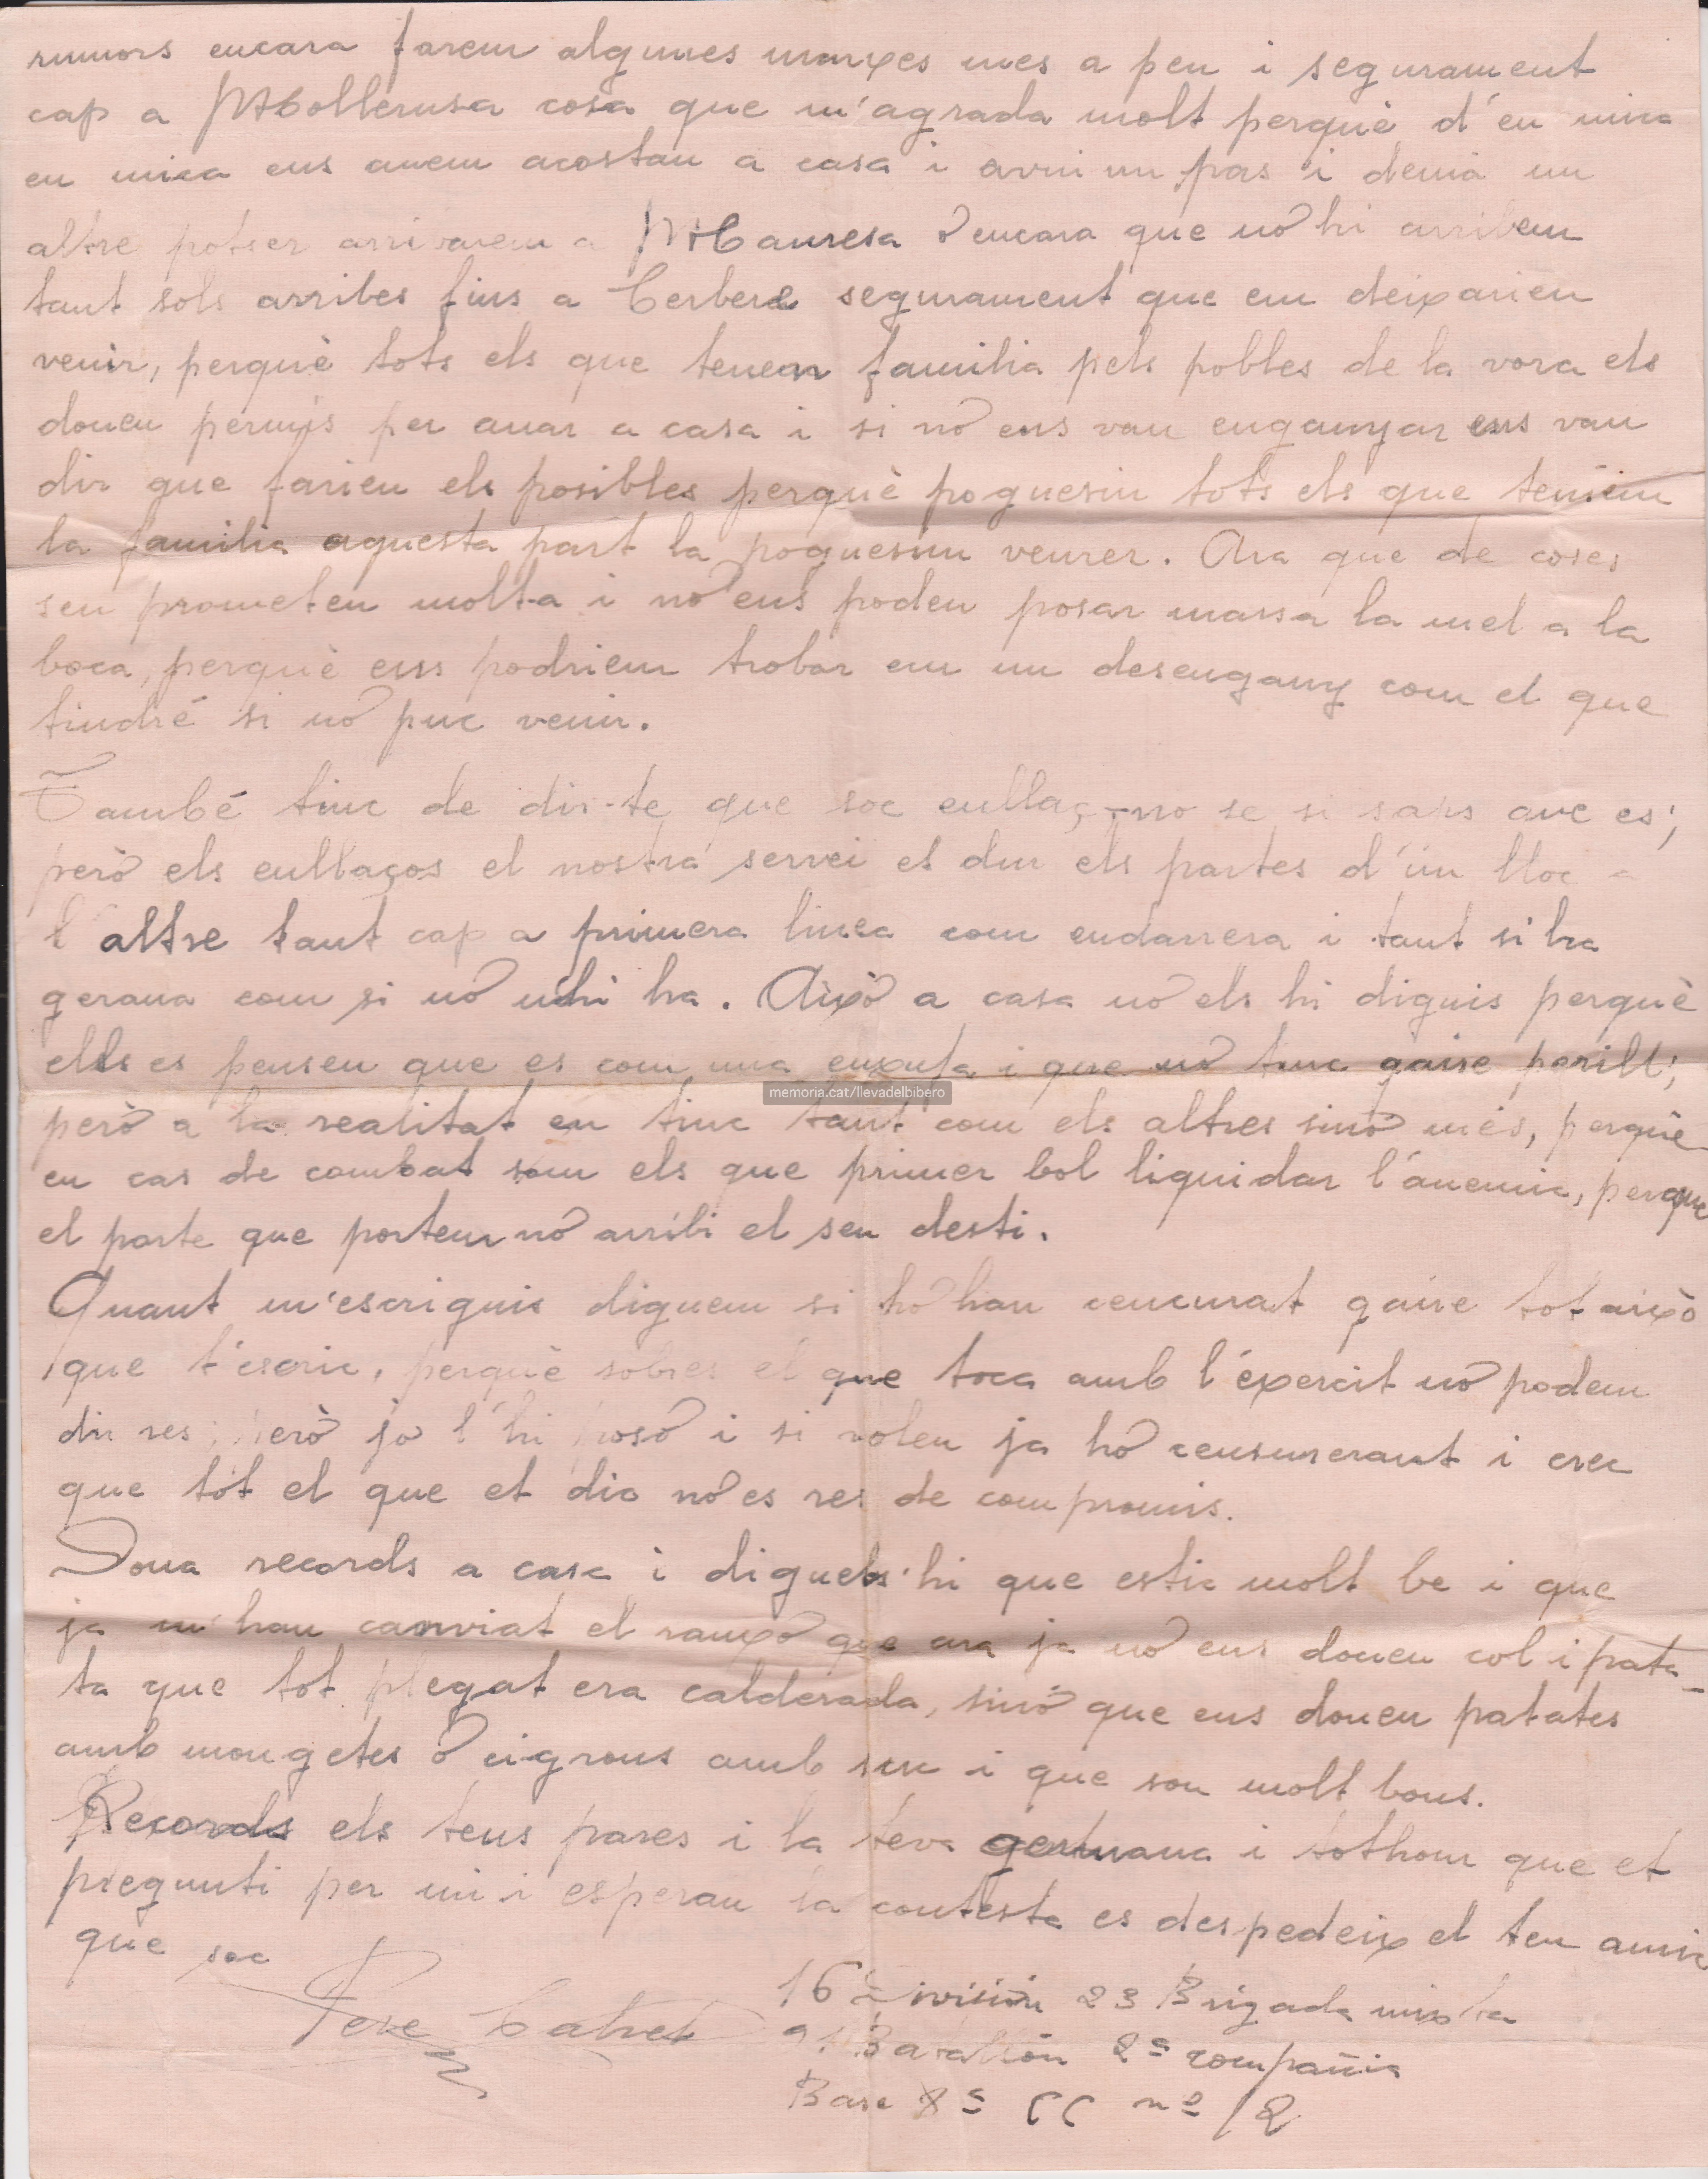 rumors encara farem algunes marxes mes a peu i segurament
cap a Mollerusa cosa que m'agrada molt perquè d'en mica
en mica ens anem acostan a casa i avui un pas i demà un
altre potser arrivarem a Manresa ò encara que nò hi arribem
tant sols arribes fins a Cerbera segurament que em deixarien
venir, perquè tots els que tenen familia pels pobles de la vora els
donen permís per anar a casa i si nò ens van enganyar ens van
dir que farien els posibles perquè poguesin tots els que teniem
la familia aquesta part la poguesim veurer. Ara que de coses
sen prometen molta i nò ens poden posar massa la mel a la
boca, perquè ens podriem trobar em un desengany com el que
tindré si nò puc venir.
També tinc de dir-te que soc enllaç, -no se si saps que es;
però els enllaços el nostra servei es dur els partes d'ún lloc a
l'altre tant cap a primera linea com endarrera i tant si ha
gerana com si nò nhi ha. Aixó a casa nò els hi diguis perquè
ells es pensen que es com una enxufa i que nò tinc gaire perill;
però a la realitat en tinc tant com els altres sinò més, perquè
en cas de combat som els que primer bol liquidar l'ánemic, perque
el parte que portem nò arribi el seu desti.
Quant m'escriguis diguem si hò han cencurat gaire tot aixó
que t'escric, perquè sobres el que toca amb l'éxercit nò podem
dir res; però jo l'hi posò i si volen ja hò censurerant i crec
que tòt el que et dic nò es res de compromis.
Dona records a casa i diguels'hi que estic molt be i que
ja m'han canviat el ranxò que ara ja nò ens donen col i pata-
ta que tot plegat era calderada, sinò que ens donen patates
amb mongetes ò cigrons amb suc i que son molt bons.
Records els teus pares i la teva germana i tothom que et
pregunti per mi i esperan la contesta es despedeix el teu amic
que soc
Pere Cabret
16 División 23 Brigada mixta
91 Batallón 2ª compañia
Base 8ª CC nº 12
memoria.cat/llevadelbibero